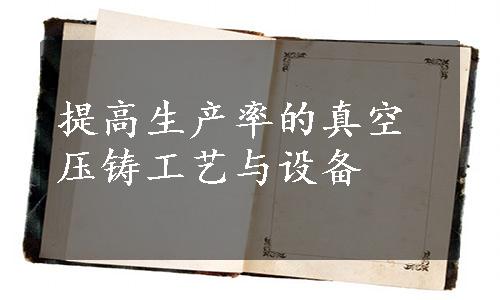 提高生产率的真空
压铸工艺与设备